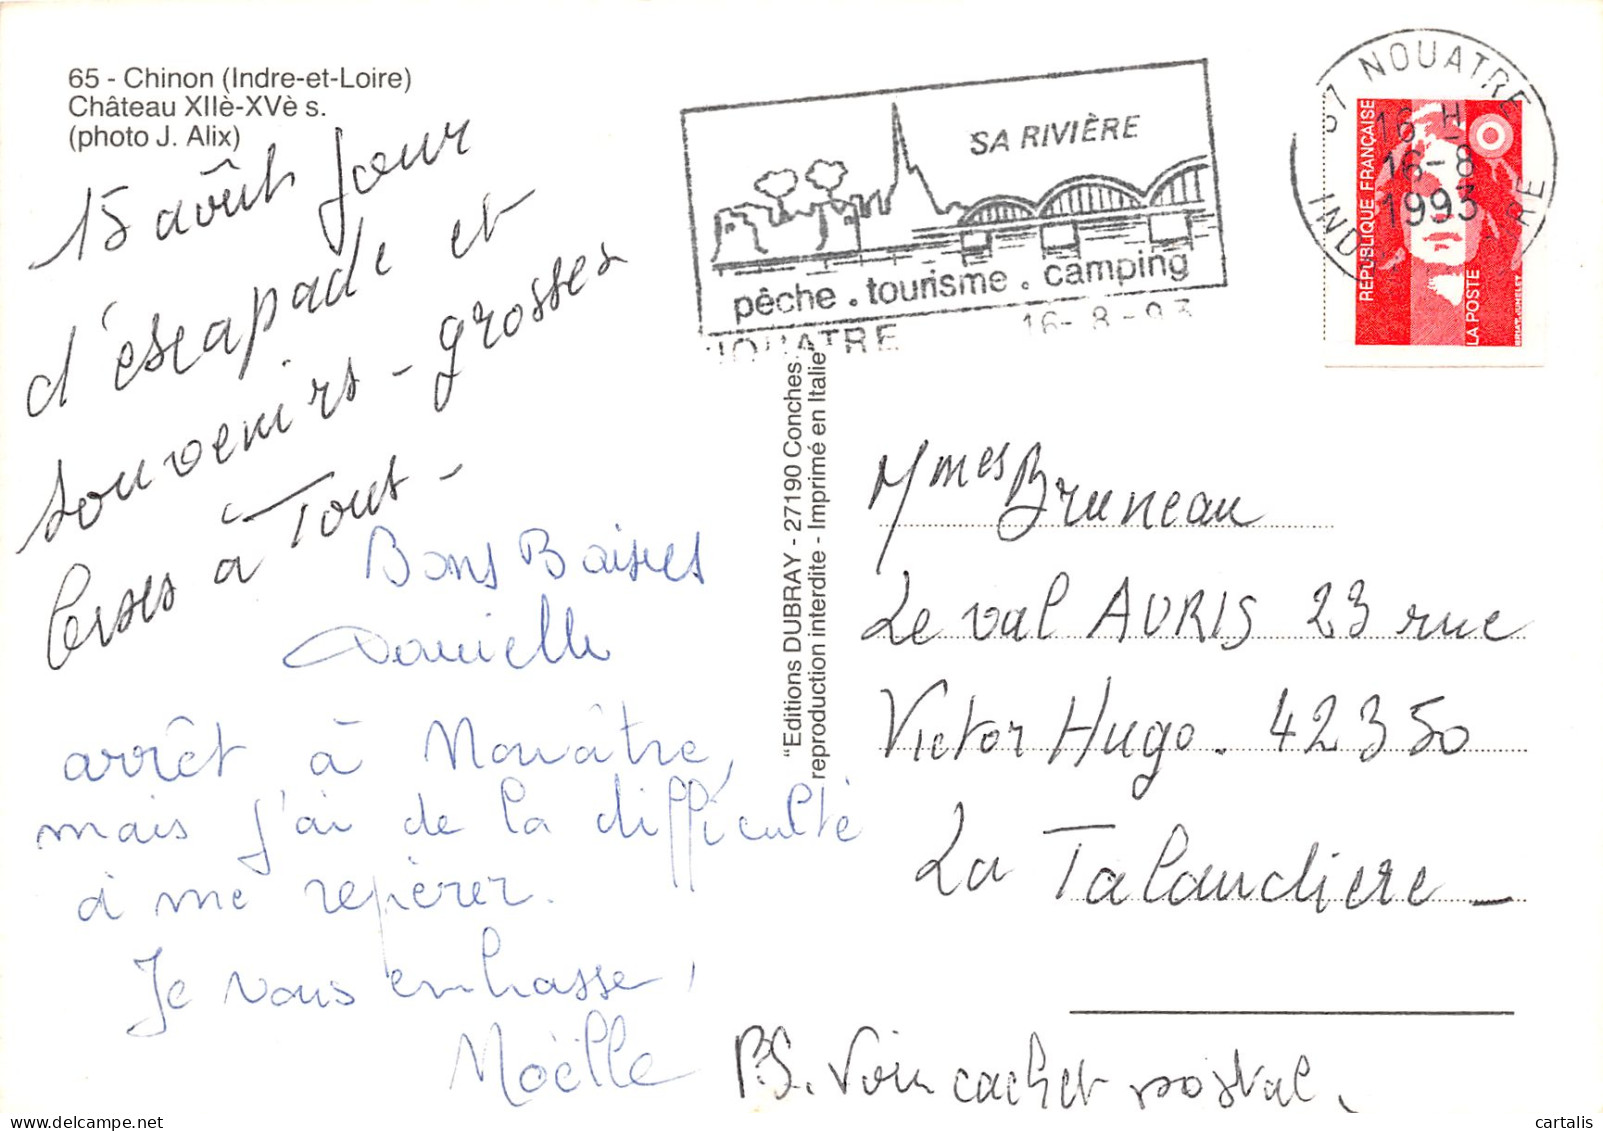 65 - Chinon (Indre-et-Loire)
Château XIIè-XVè s.
(photo J. Alix)
15 août jour
d'escapade et
souvenirs - grosses
bises à Tout -
Bons Baisers
Danielle
arrêt à Nouâtre,
mais j'ai de la difficulté
à me repérer.
Je vous embrasse,
Noëlle
P.S. Voir cachet postal.
SA RIVIÈRE
pêche . tourisme . camping
NOUATRE 16-8-93
37 NOUATRE
16 H
16-8
1993
INDRE
RÉPUBLIQUE FRANÇAISE
LA POSTE
"Editions DUBRAY - 27190 Conches
reproduction interdite - Imprimé en Italie
Mmes Bruneau
Le val AURIS 23 rue
Victor Hugo. 42350
La Talaudiere -
cartalis